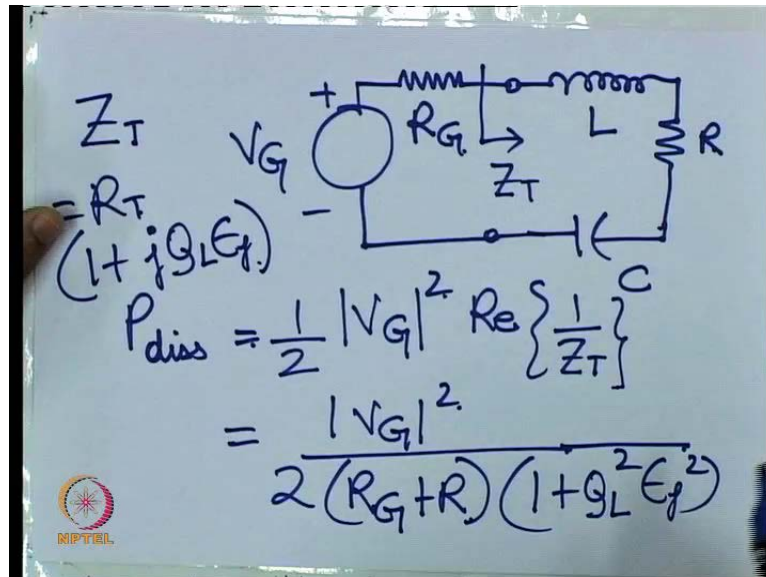 Z_T
= R_T
(1 + jQ_L ϵ_f)
V_G
+
−
R_G
Z_T
L
R
C
P_diss = 1/2 |V_G|² Re{1/Z_T}
= |V_G|² / 2(R_G + R)(1 + Q_L² ϵ_f²)
NPTEL